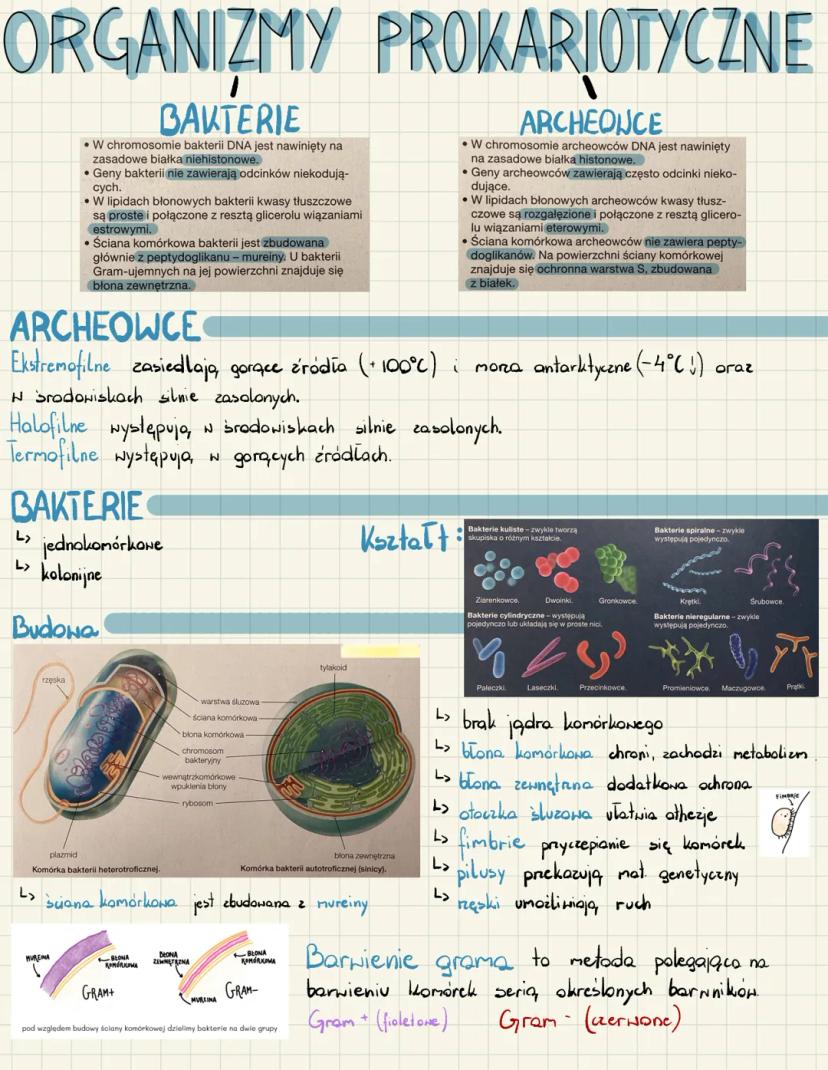 ORGANIZMY PROKARIOTYCZNE
BAKTERIE
• W chromosomie bakterii DNA jest nawinięty na
zasadowe białka niehistonowe.
• Geny bakterii nie zawierają odcinków niekodują-
cych.
• W lipidach błonowych bakterii kwasy tłuszczowe
są proste i połączone z resztą glicerolu wiązaniami
estrowymi.
• Ściana komórkowa bakterii jest zbudowana
głównie z peptydoglikanu – mureiny. U bakterii
Gram-ujemnych na jej powierzchni znajduje się
błona zewnętrzna.
ARCHEOWCE
• W chromosomie archeowców DNA jest nawinięty
na zasadowe białka histonowe.
• Geny archeowców zawierają często odcinki nieko-
dujące.
• W lipidach błonowych archeowców kwasy tłusz-
czowe są rozgałęzione i połączone z resztą glicero-
lu wiązaniami eterowymi.
• Ściana komórkowa archeowców nie zawiera pepty-
doglikanów. Na powierzchni ściany komórkowej
znajduje się ochronna warstwa S, zbudowana
z białek.
ARCHEOWCE
Ekstremofilne zasiedlają gorące źródła (+100°C) i morza antarktyczne (-4°C ↓) oraz
w środowiskach silnie zasolonych.
Halofilne występują w środowiskach silnie zasolonych.
Termofilne występują w gorących źródłach.
BAKTERIE
↳ jednokomórkowe
↳ kolonijne
Kształt:
Bakterie kuliste – zwykle tworzą
skupiska o różnym kształcie.
Ziarenkowce. Dwoinki. Gronkowce.
Bakterie spiralne – zwykle
występują pojedynczo.
Krętki. Śrubowce.
Bakterie cylindryczne – występują
pojedynczo lub układają się w proste nici.
Pałeczki. Laseczki. Przecinkowce.
Bakterie nieregularne – zwykle
występują pojedynczo.
Promieniowce. Maczugowce. Prątki.
Budowa
rzęska
tylakoid
warstwa śluzowa
ściana komórkowa
błona komórkowa
chromosom
bakteryjny
wewnątrzkomórkowe
wpuklenia błony
rybosom
plazmid
błona zewnętrzna
Komórka bakterii heterotroficznej.
Komórka bakterii autotroficznej (sinicy).
↳ ściana komórkowa jest zbudowana z mureiny
↳ brak jądra komórkowego
↳ błona komórkowa chroni, zachodzi metabolizm.
↳ błona zewnętrzna dodatkowa ochrona
↳ otoczka śluzowa ułatwia athezje
↳ fimbrie przyczepianie się komórek
↳ pilusy przekazują mat. genetyczny
↳ rzęski umożliwiają ruch
FIMBRIE
MUREINA
BŁONA
KOMÓRKOWA
GRAM+
BŁONA
ZEWNĘTRZNA
BŁONA
KOMÓRKOWA
MUREINA
GRAM-
pod względem budowy ściany komórkowej dzielimy bakterie na dwie grupy
Barwienie grama to metoda polegająca na
barwieniu komórek serią określonych barwników.
Gram + (fioletowe) Gram - (czerwone)